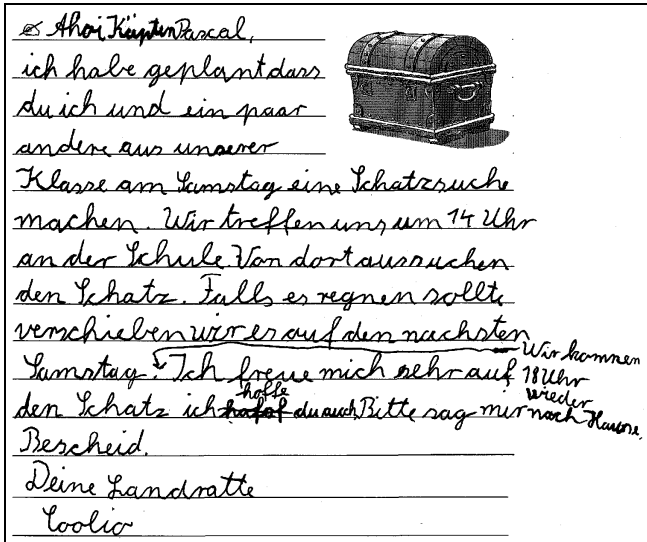 Ahoi Käpten Pascal,
ich habe geplant dass
du ich und ein paar
andere aus unserer
Klasse am Samstag eine Schatzsuche
machen. Wir treffen uns um 14 Uhr
an der Schule. Von dort aussuchen
den Schatz. Falls es regnen sollte
verschieben wir es auf den nachsten
Samstag. Ich freue mich sehr auf
den Schatz ich hoffe du auch. Bitte sag mir
Bescheid.
Deine Landratte
Coolio
Wir kommen
18 Uhr
wieder
nach Hause.